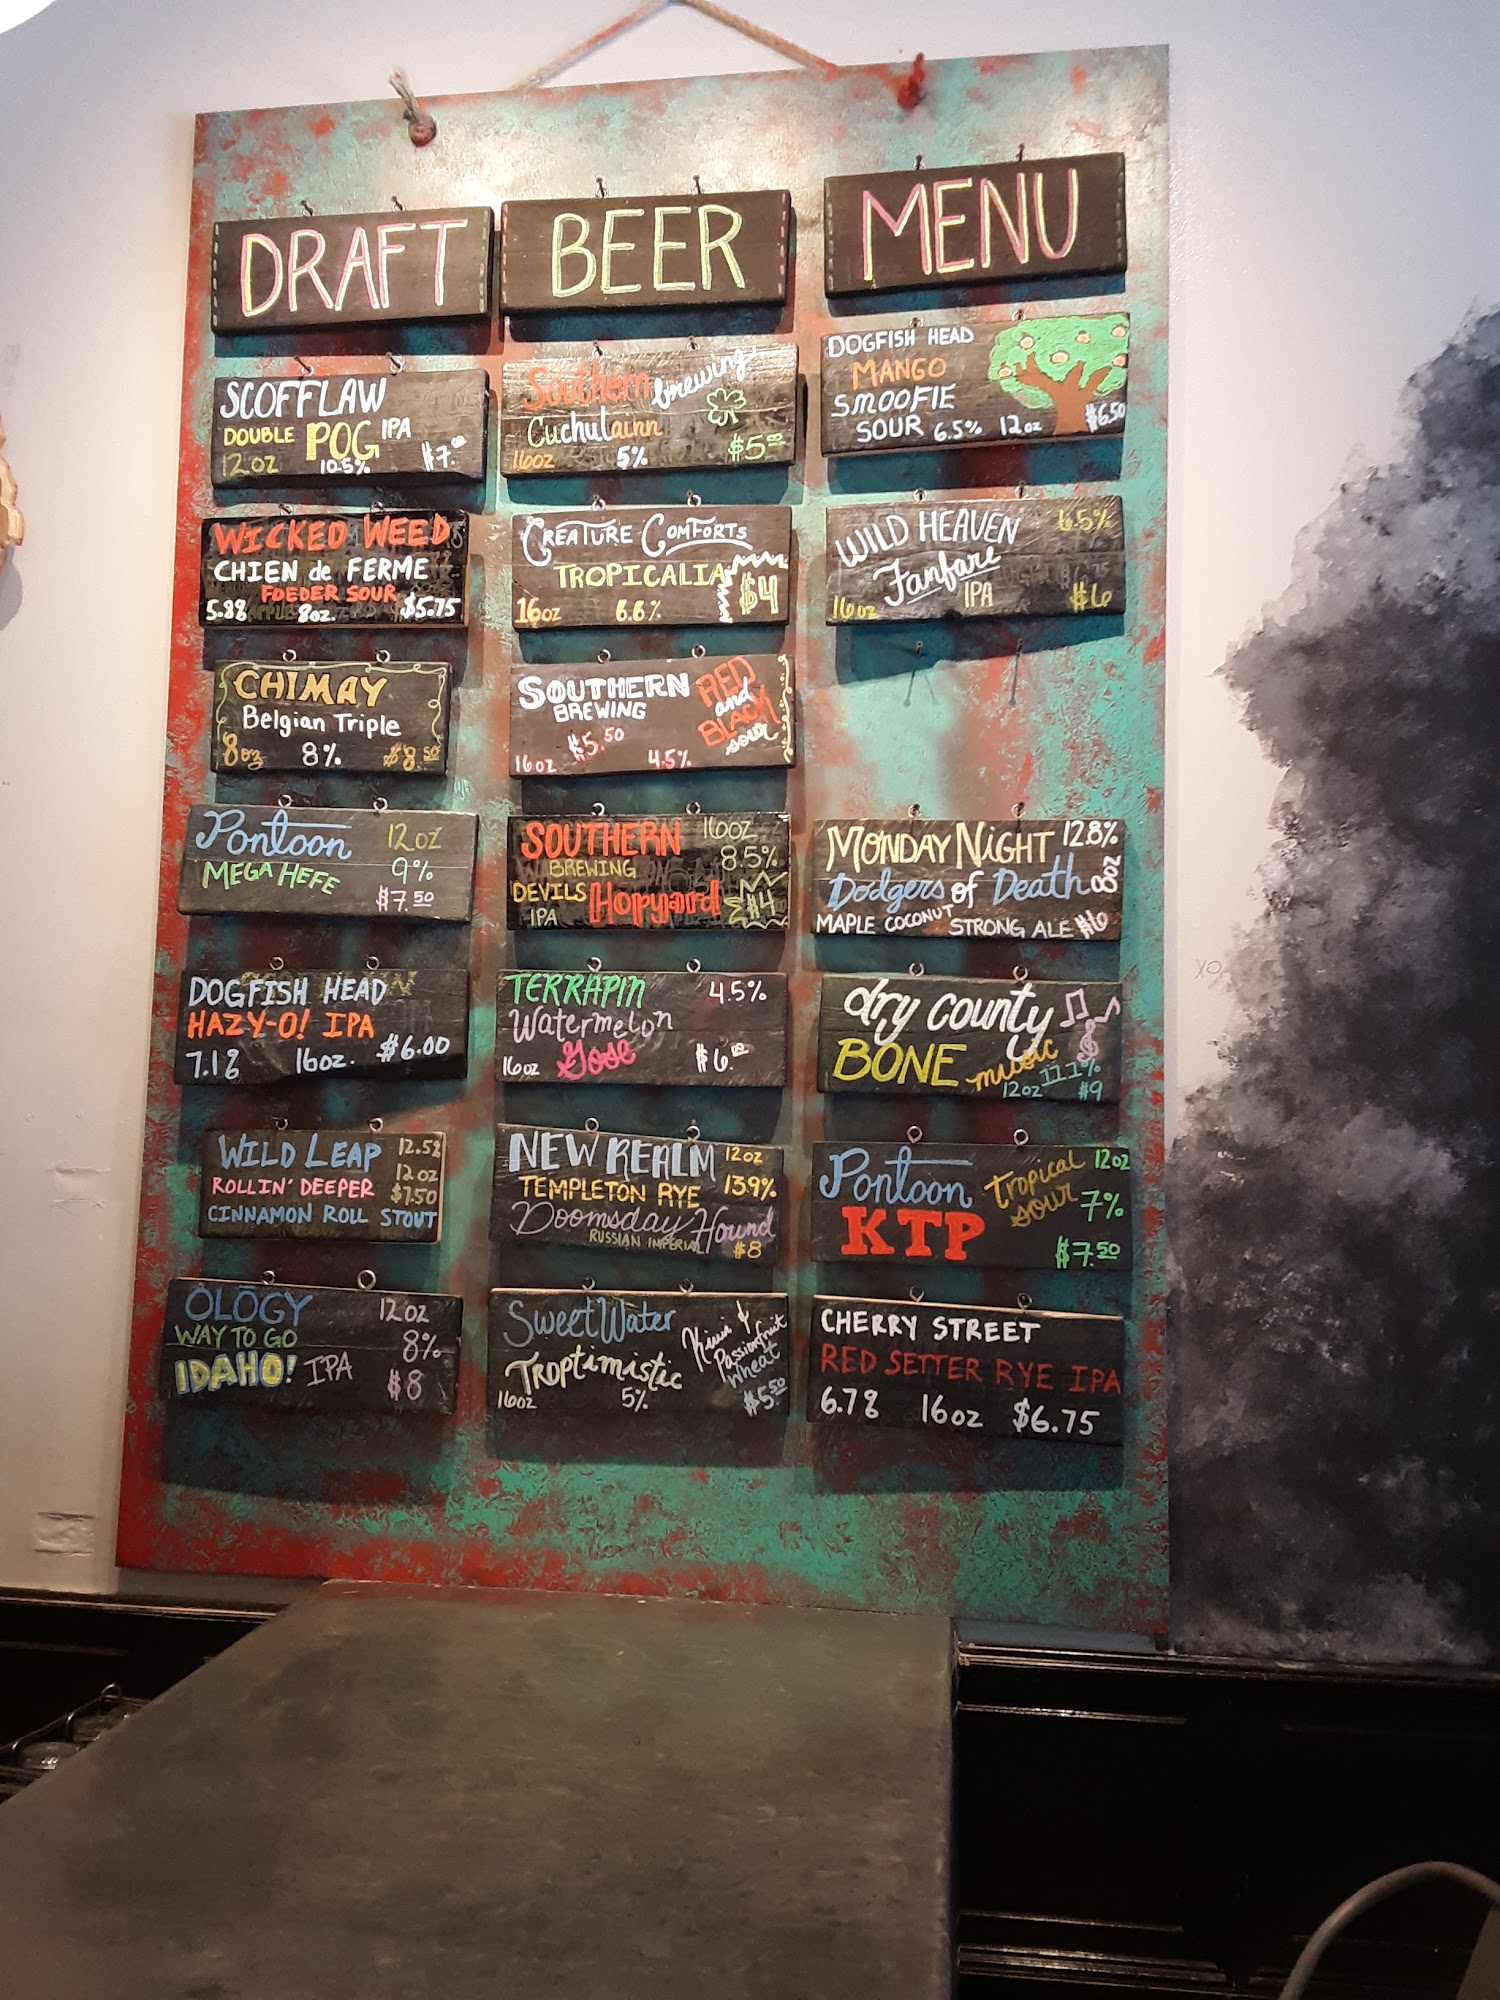 DRAFT BEER MENU
SCOFFLAW
DOUBLE POG IPA
12 OZ 10.5% $7.00
WICKED WEED
CHIEN de FERME
FOEDER SOUR
5.8% 8oz. $5.75
CHIMAY
Belgian Triple
8oz 8% $8.50
Pontoon 12 OZ
MEGA HEFE 9%
$7.50
DOGFISH HEAD
HAZY-O! IPA
7.1% 16oz. $6.00
WILD LEAP 12.5%
12 oz
ROLLIN' DEEPER $7.50
CINNAMON ROLL STOUT
OLOGY 12 OZ
WAY TO GO 8%
IDAHO! IPA $8
Southern brewing
Cuchulainn
16oz 5% $5.00
CREATURE COMFORTS
TROPICALIA
16oz 6.6% $4
SOUTHERN RED
BREWING and
BLACK
$5.50 sour
16 oz 4.5%
SOUTHERN 16OZ
BREWING 8.5%
DEVILS Hopyard $4
IPA
TERRAPIN 4.5%
Watermelon
16oz Gose $6.00
NEW REALM 12 OZ
TEMPLETON RYE 13.9%
Doomsday Hound
RUSSIAN IMPERIAL $8
SWEETWATER Kiwi &
Passionfruit
TROPTIMISTIC Wheat
16oz 5% $5.50
DOGFISH HEAD
MANGO
SMOOFIE
SOUR 6.5% 12oz $6.50
WILD HEAVEN 6.5%
Fanfare
16oz IPA $6
MONDAY NIGHT 12.8%
Dodgers of Death 8oz
MAPLE COCONUT STRONG ALE $6
dry county
BONE music
12oz 11.1%
$9
Pontoon Tropical 12oz
KTP sour 7%
$7.50
CHERRY STREET
RED SETTER RYE IPA
6.7% 16oz $6.75